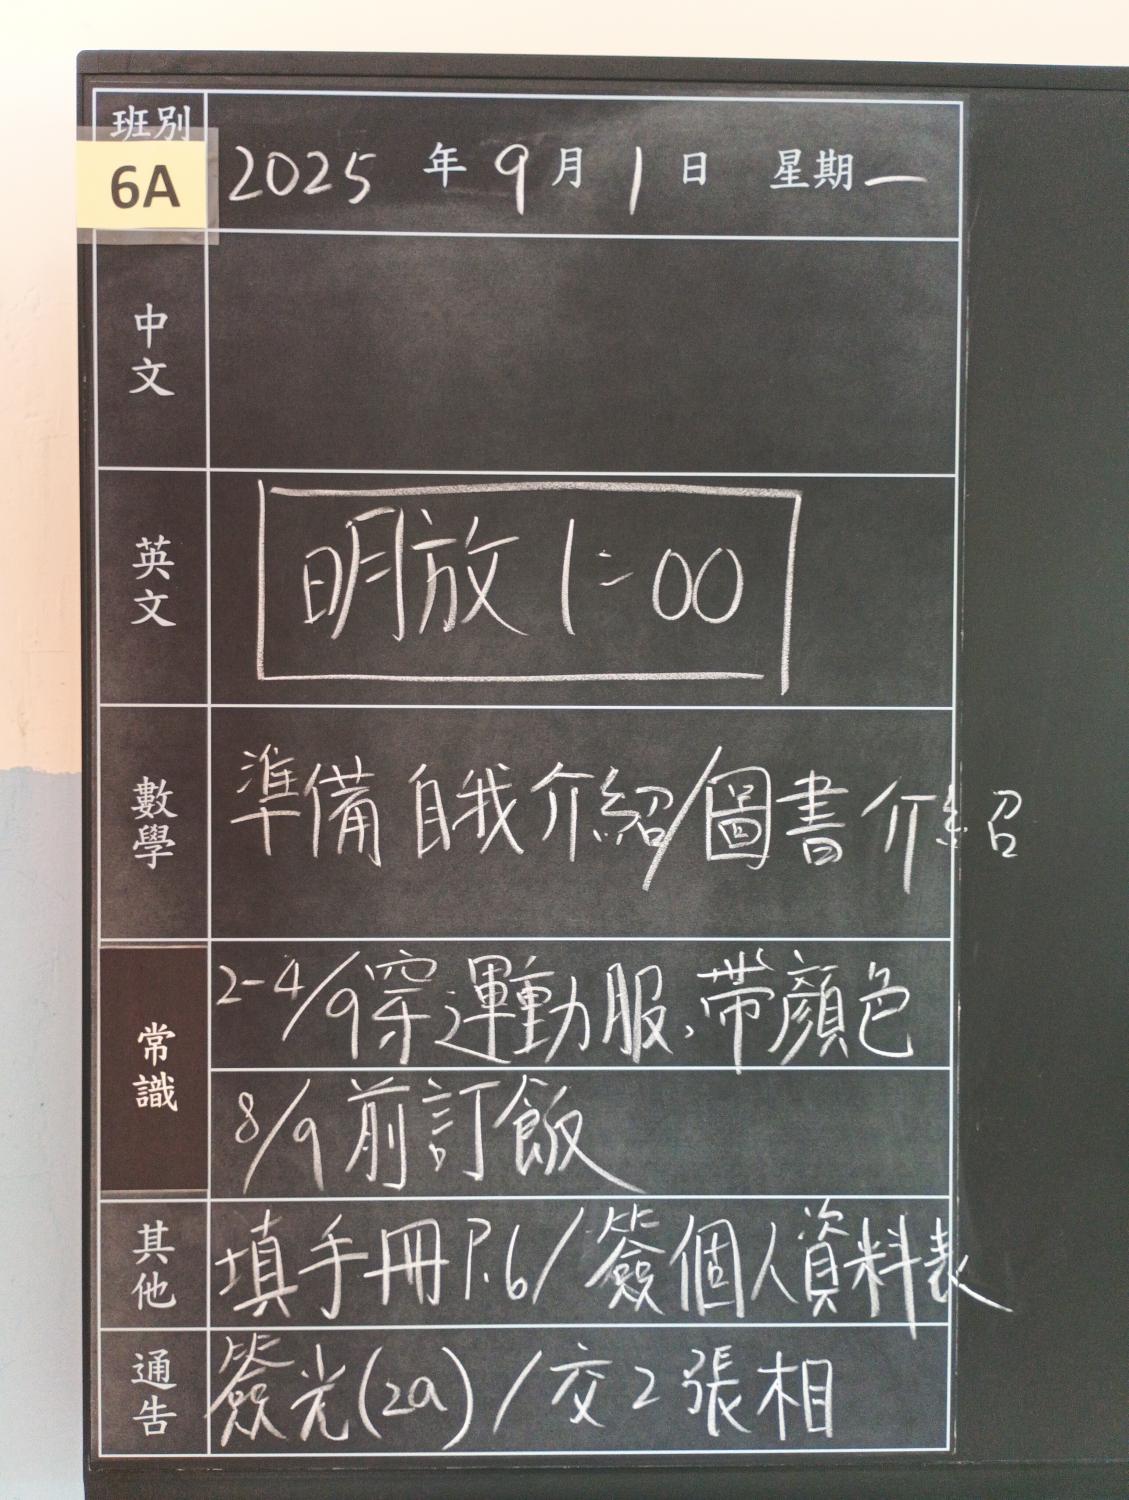 班別
6A
2025 年 9 月 1 日 星期一
中文
英文
明放 1:00
數學
準備 自我介紹/圖書介紹
常識
2-4/9穿運動服,帶顏色
8/9前訂飯
其他
填手冊P.6/簽個人資料表
通告
簽光(2a)/交2張相